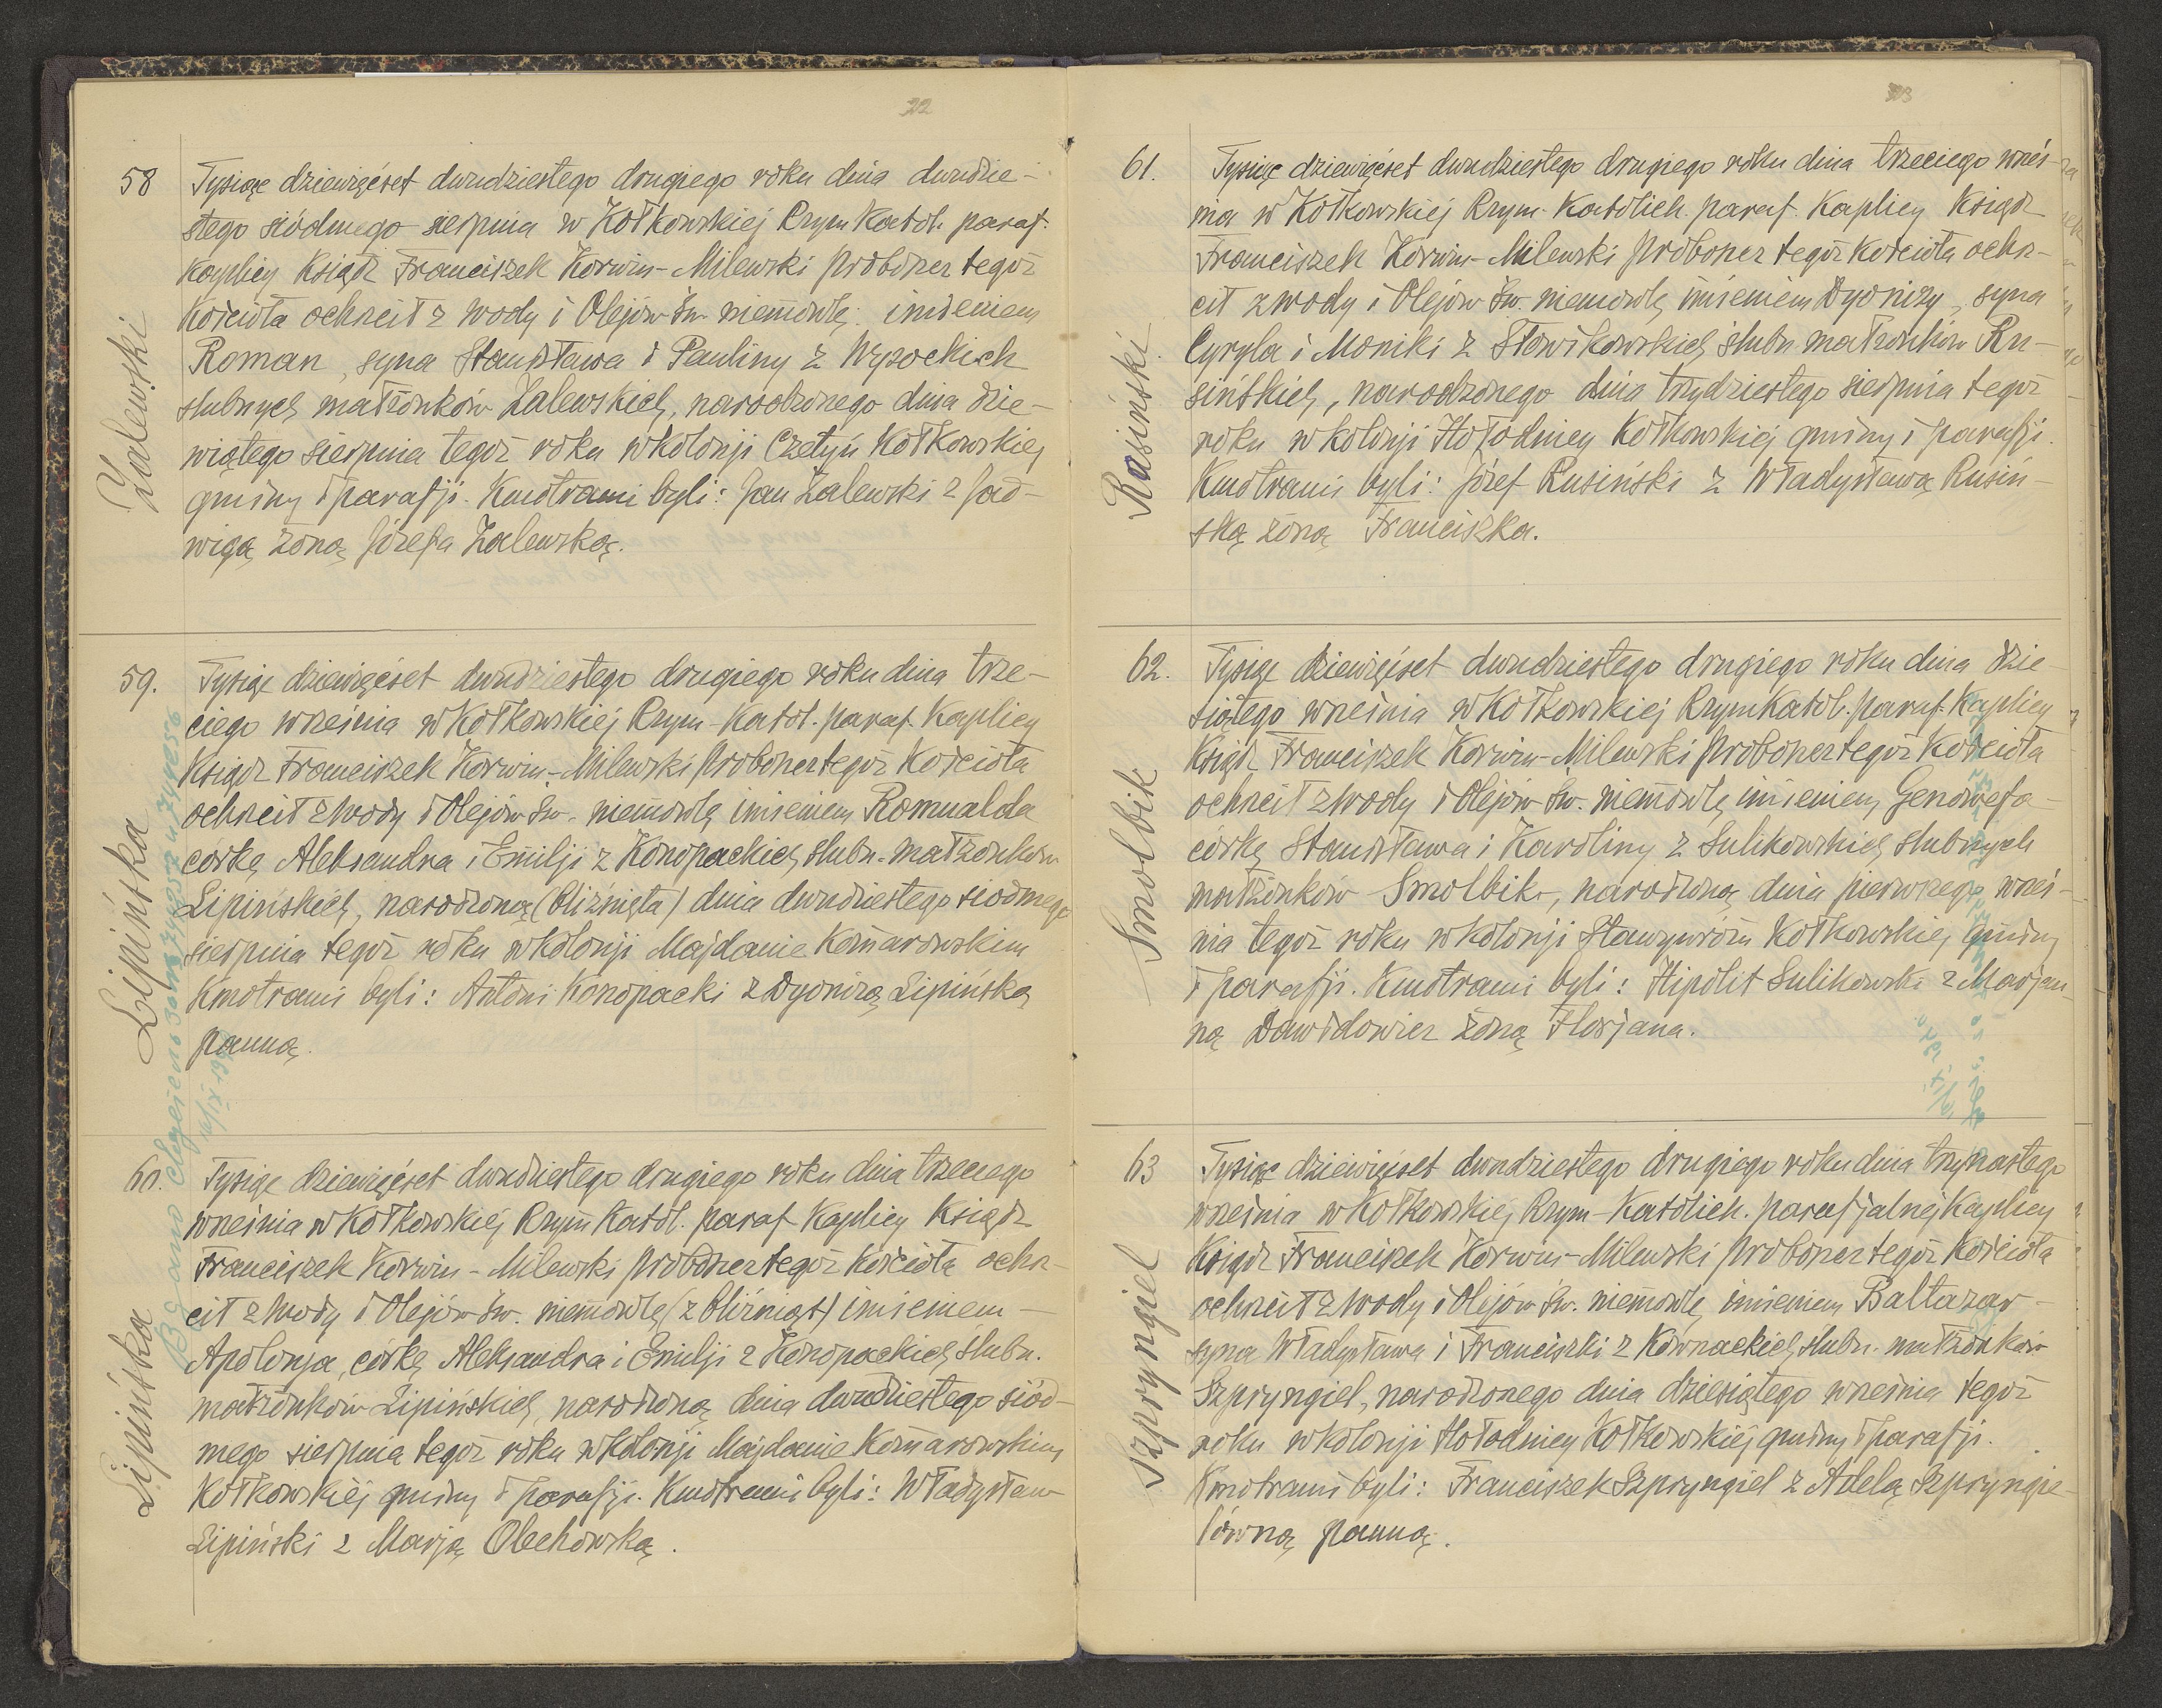 22
58
Zalewski
Tysiąc dziewięćset dwudziestego drugiego roku dnia dwudzie-
stego siódmego sierpnia w Kołkowskiej Rzym Katol. paraf.
Kaplicy Ksiądz Franciszek Korwin-Milewski Proboszcz tegoż
Kościoła ochrzcił z wody i Olejów Św. niemowlę imieniem
Roman, syna Stanisława i Pauliny z Wysockich
ślubnych małżonków Zalewskich, narodzonego dnia dzie-
wiątego sierpnia tegoż roku w kolonji Czetyń Kołkowskiej
gminy i parafji. Kmotrami byli: Jan Zalewski z Jad-
wigą żoną Józefa Zalewską.
59.
Lipińska
Tysiąc dziewięćset dwudziestego drugiego roku dnia trze-
ciego września w Kołkowskiej Rzym-Katol. paraf. Kaplicy
Ksiądz Franciszek Korwin-Milewski Proboszcz tegoż Kościoła
ochrzcił z wody i Olejów Św. niemowlę imieniem Romualda
córkę Aleksandra i Emilji z Konopackich ślubn. małżonków
Lipińskich, narodzoną (bliźnięta) dnia dwudziestego siodmego
sierpnia tegoż roku w kolonji Majdanie Komarowskim
Kmotrami byli: Antoni Konopacki z Dyonizą Lipińską
panną.
60.
Lipińska
Tysiąc dziewięćset dwudziestego drugiego roku dnia trzeciego
września w Kołkowskiej Rzym Katol. paraf Kaplicy Ksiądz
Franciszek Korwin-Milewski Proboszcz tegoż Kościoła ochrz-
cił z wody i Olejów Św. niemowlę (z bliźniąt) imieniem-
Apolonja, córkę Aleksandra i Emilji z Konopackich ślubn.
małżonków Lipińskich, narodzoną dnia dwudziestego siód-
mego sierpnia tegoż roku w kolonji Majdanie Komarowskim
Kołkowskiej gminy i parafji. Kmotrami byli: Władysław
Lipiński z Marją Olechowską.
61.
Rusiński
Tysiąc dziewięćset dwudziestego drugiego roku dnia trzeciego wrześ-
nia w Kołkowskiej Rzym-Katolick. paraf. Kaplicy Ksiądz
Franciszek Korwin-Milewski Proboszcz tegoż Kościoła ochrz-
cił z wody i Olejów Św. niemowlę imieniem Dyonizy, syna
Cyryla i Moniki z Słowikowskich ślubn małżonków Ru-
sińskich, narodzonego dnia trzydziestego sierpnia tegoż
roku w kolonji Hołodnicy Kołkowskiej gminy i parafji.
Kmotrami byli: Józef Rusiński z Władysławą Rusiń-
ską żoną Franciszka.
62.
Smolbik
Tysiąc dziewięćset dwudziestego drugiego roku dnia dzie-
siątego września w Kołkowskiej Rzym Katol. paraf. Kaplicy
Ksiądz Franciszek Korwin-Milewski Proboszcz tegoż Kościoła
ochrzcił z wody i Olejów Św. niemowlę imieniem Genowefa-
córkę Stanisława i Karoliny z Sulikowskich ślubnych
małżonków Smolbik, narodzoną dnia pierwszego wrześ-
nia tegoż roku w kolonji Kołkowskiej gminy
i parafji. Kmotrami byli: Hipolit Sulikowski z Marjan-
ną Dawidowicz żoną Florjana.
63
Szpryngiel
Tysiąc dziewięćset dwudziestego drugiego roku dnia trzynastego
września w Kołkowskiej Rzym-Katolick. parafjalnej Kaplicy
Ksiądz Franciszek Korwin-Milewski Proboszcz tegoż Kościoła
ochrzcił z wody i Olejów Św. niemowlę imieniem Baltazar-
syna Władysława i Franciszki z Kownackich, ślubn. małżonków
Szpryngiel, narodzonego dnia dziesiątego września tegoż
roku w kolonji Hołodnicy Kołkowskiej gminy i parafji.
Kmotrami byli: Franciszek Szpryngiel z Adelą Szpryngie-
lówną panną.